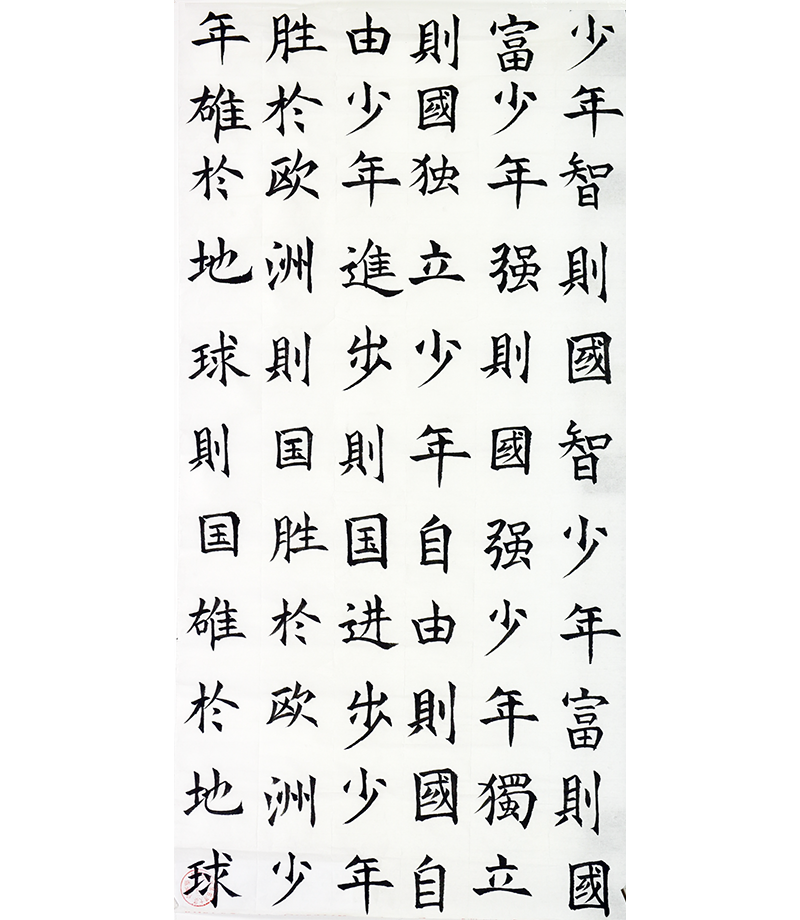 少年智則國智少年富則國
富少年强則國强少年獨立
則國独立少年自由則國自
由少年進步則国进步少年
胜於欧洲則国胜於欧洲少
年雄於地球則国雄於地球